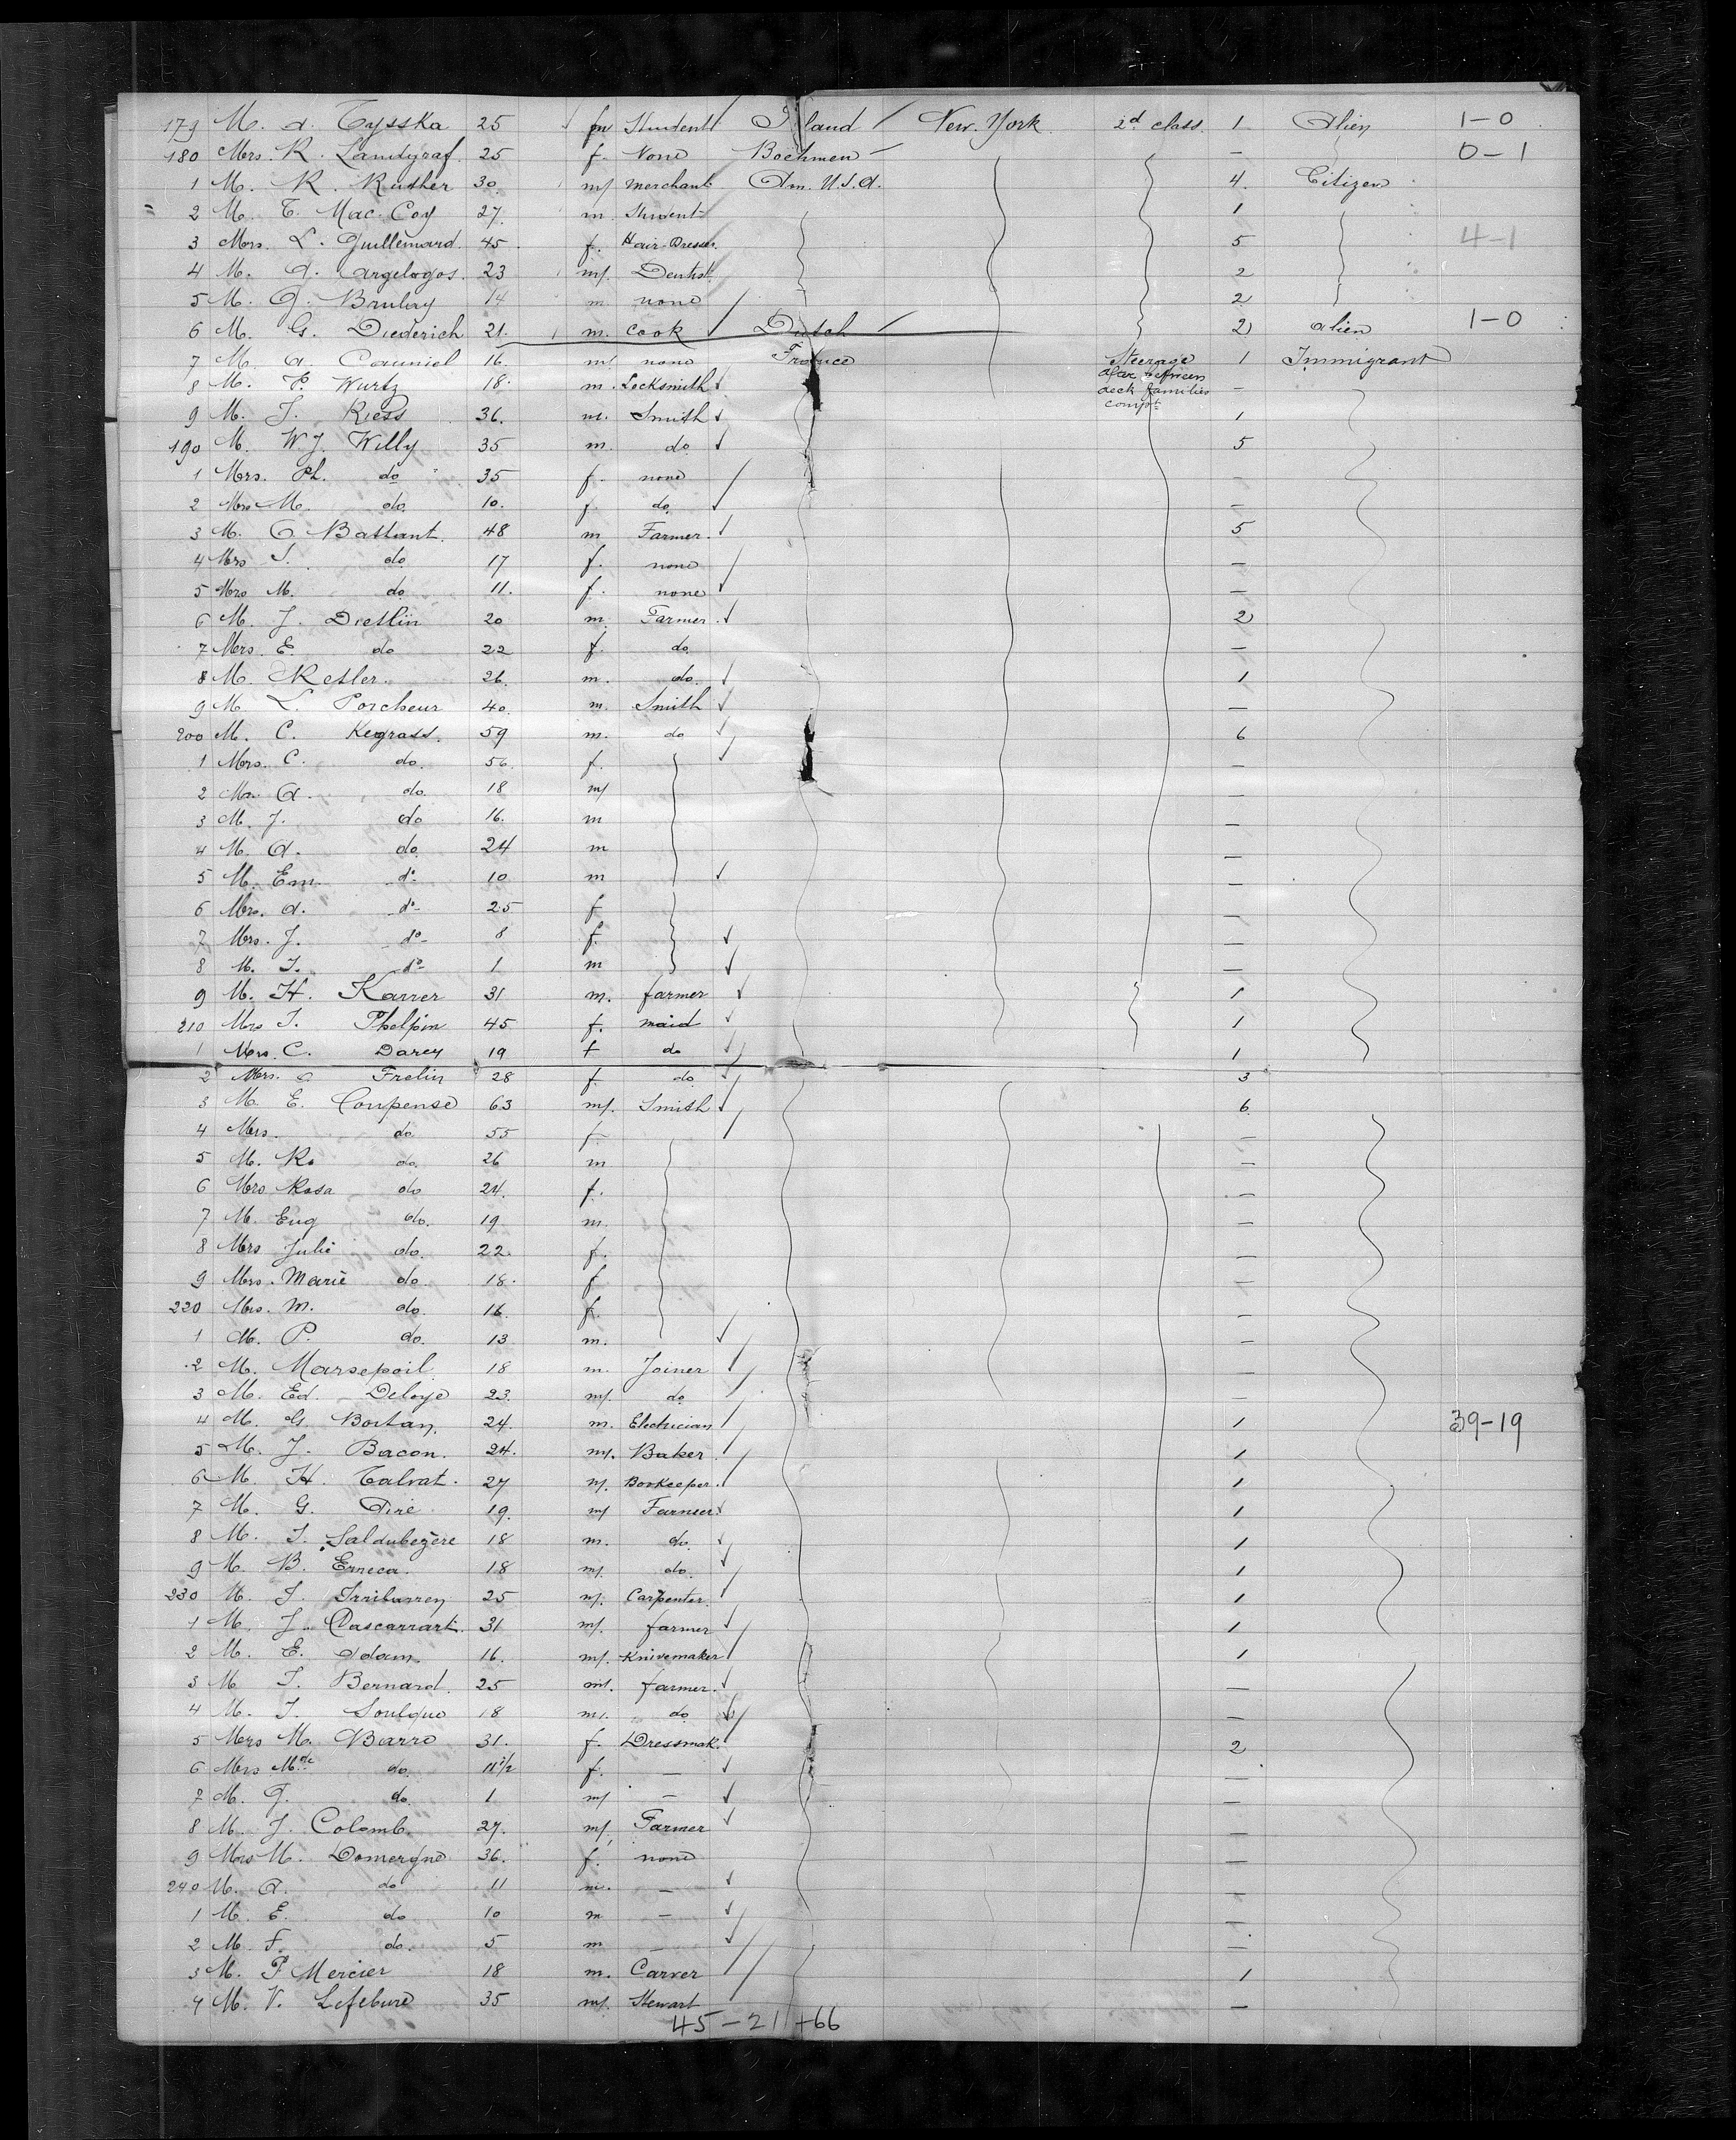 179 M. A. Tysska 25 m Student Iland New. York 2d class. 1 Alien 1-0
180 Mrs. R. Landgraf. 25 f. None Boehmen — 0-1
1 M. R. Ruther 30. m Merchant Am. U.S.A. 4. Citizen
2 M. T. Mac. Coy 27. m. Student 1
3 Mrs. L. Guillemard. 45. f. Hair-Dresser. 5 4-1
4 M. A. Argelogos. 23 m. Dentist 2
5 M. J. 14 m. none 2
6 M. G. Diederich 21. m. Cook Dutch 2 alien 1-0
7 M. A. Cauniol 16. m. none France Steerage 1 Immigrant
8 M. P. Wurtz 18. m. Locksmith after between deck families compt —
9 M. J. Riess 36. m. Smith 1
190 M. W.J. Willy 35 m. do 5
1 Mrs. Ph. do 35 f. none —
2 Mrs M. do. 10. f. do. —
3 M. C. Battant. 48 m Farmer. 5
4 Mrs J. do 17 f. none —
5 Mrs M. do 11. f. none —
6 M. J. Dietlin 20 m. Farmer. 2
7 Mrs. E. do 22 f. do. —
8 M. Ketler. 26. m. do. 1
9 M. L. Porcheur 40. m. Smith —
200 M. C. Kegrass. 59 m. do 6
1 Mrs. C. do. 56. f. —
2 M. A. do. 18 m —
3 M. J. do 16. m —
4 M. A. do. 24 m —
5 M. Em. do 10 m —
6 Mrs. A. do 25 f —
7 Mrs. J. do 8 f. —
8 M. J. do 1 m —
9 M. H. Karrer 31 m. farmer 1
210 Mrs J. Thelpin 45 f. maid 1
1 Mrs. C. Darcy 19 f do 1
2 Mrs. Frelin 28 f. do. 3
3 M. E. Coupense 63 m. Smith 6.
4 Mrs. do 55 f. —
5 M. R. do. 26 m —
6 Mrs Rosa do 24. f. —
7 M. Eug do. 19. m. —
8 Mrs Julie do. 22. f. —
9 Mrs. Marie do. 18. f —
220 Mrs. M. do. 16. f. —
1 M. P. do. 13 m. —
2 M. Marsepoil. 18 m. Joiner —
3 M. Ed. Deloye 23. m. do —
4 M. G. Bortan. 24. m. Electrician 1 39-19
5 M. J. Bacon. 24. m. Baker 1
6 M. H. Talvat. 27 m. Bookeeper. 1
7 M. G. Diré 19. m Farmer. 1
8 M. J. Saldubezère 18 m. do. 1
9 M. B. Erneca. 18 m. do. 1
230 M. J. Irriburren 25 m. Carpenter. 1
1 M. J. Dascarrart. 31 m. farmer 1
2 M. E. Adam. 16. m. Knivemaker 1
3 M J. Bernard. 25 m. farmer. —
4 M. J. Soulque 18 m. do —
5 Mrs M. Barre 31. f. Dressmak. 2
6 Mrs Mele do. 11 1/2 f. — —
7 M. G. do. 1 m — —
8 M. J. Colomb. 27. m Farmer —
9 Mrs M. Domergne 36. f. none —
240 M. A. do 11 m. — —
1 M. E. do 10 m — —
2 M. F. do. 5 m — —
3 M. P Mercier 18 m. Carver 1
4 M. V. Lefebure 35 m. Stewart —
45-21+66